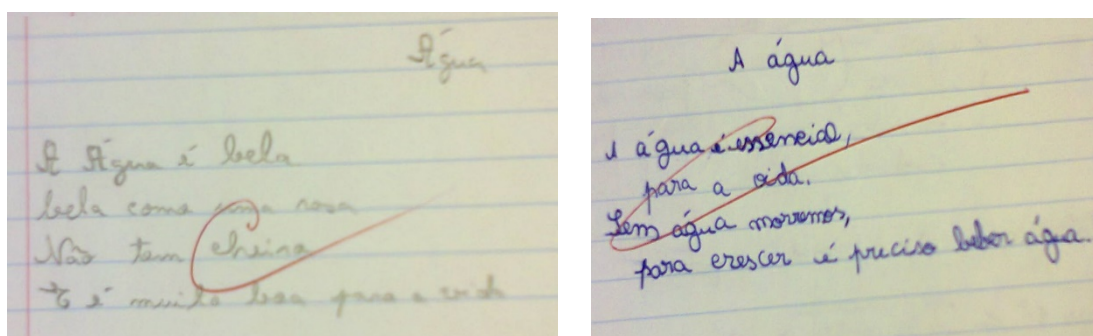 Água
A Água é bela
bela como uma rosa
Não tem cheiro
E é muito boa para a vida
A água
A água é essencial,
para a vida.
Sem água morremos,
para crescer é preciso beber água.